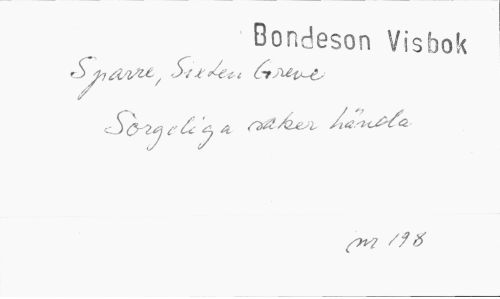 Bondeson Visbok
Sparre, Sixten Greve
Sorgeliga saker hända
nr 198